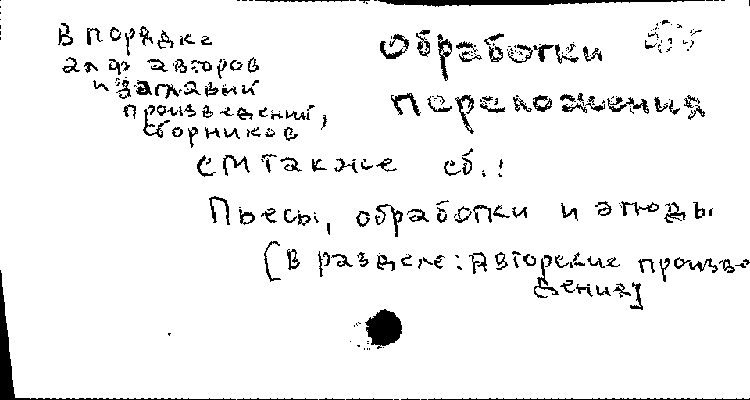 В порядке
алф авторов
и заглавий
произведений,
сборников
Обработки
переложения
см также сб.:
Пьесы, обработки и этюды
[в разделе: Авторские произве
дения]